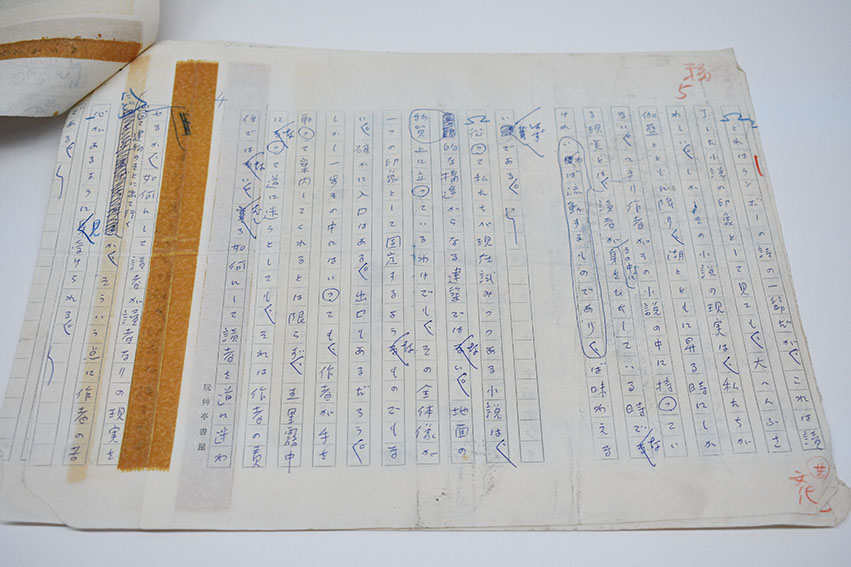 これはランボーの詩の一節だが、これは読
了した小説の印象として見ても、大へんふさ
わしい。しかもその小説の現実は、私たちが
伽藍とともに降り、湖とともに昇る時にしか
ない。つまり作者がその小説の中に持ってい
る現実とは、読者がその中に身をひたしている時でな
ければ流動するものであり、ば味わえな
いである。
従って私たちが現在試みつつある小説は、
的な構造からなる建築ではない。地面の
上に立っているわけでも、その全体像が
一つの印象として固定するようなものでもな
い。確かに入口はある。出口もあるだろう。
しかし一歩その中にはいっても、作者が手を
取って案内してくれるとは限らず、五里霧中
になって道に迷うとしても、それは作者の責
任ではない。寧ろ如何にして読者を道に迷わ
4
玩艸亭書屋
せるか、如何にして読者が読者なりの現実を
建物のそとに出て行くか、そういう点に作者の苦
心があるように見受けられる。
である。
5
文化